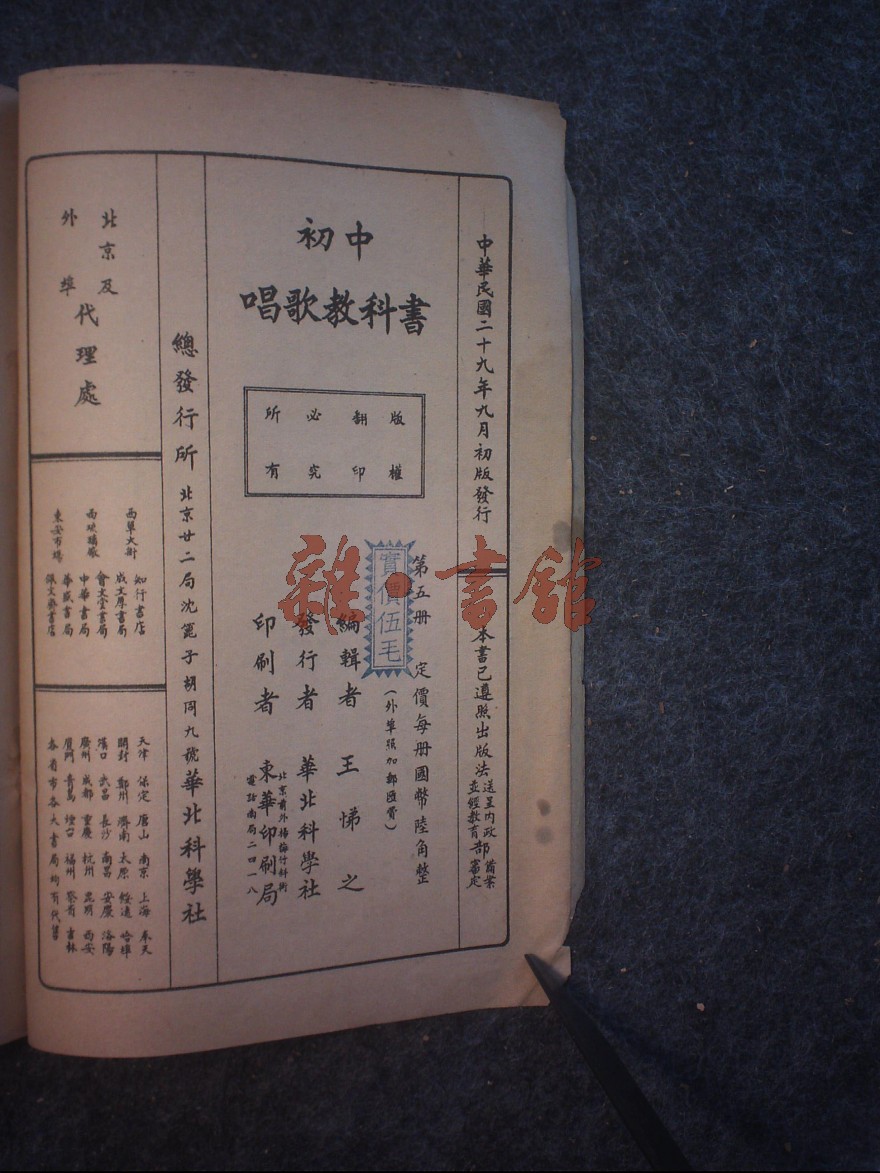 中華民國二十九年九月初版發行
本書已遵照出版法送呈內政部備案
並經教育部審定
初中
唱歌教科書
版權
翻印
必究
所有
第五册 定價每册國幣陸角整
(外埠照加郵匯費)
實價伍毛
編輯者 王悌之
發行者 華北科學社
印刷者 東華印刷局
北京前外楊梅竹斜街
電話南局二四一八
總發行所 北京廿二局沈篦子胡同九號華北科學社
北京及
外埠
代理處
西單大街 知行書店
成文厚書局
西琉璃廠 會文堂書局
中華書局
華盛書局
東安市場 佩文齋書店
天津 保定 唐山 南京 上海 奉天
開封 鄭州 濟南 太原 綏遠 哈埠
漢口 武昌 長沙 南昌 安慶 洛陽
廣州 成都 重慶 杭州 昆明 西安
廈門 青島 煙台 福州 吉林
各省市各大書局均有代售
雜·書館